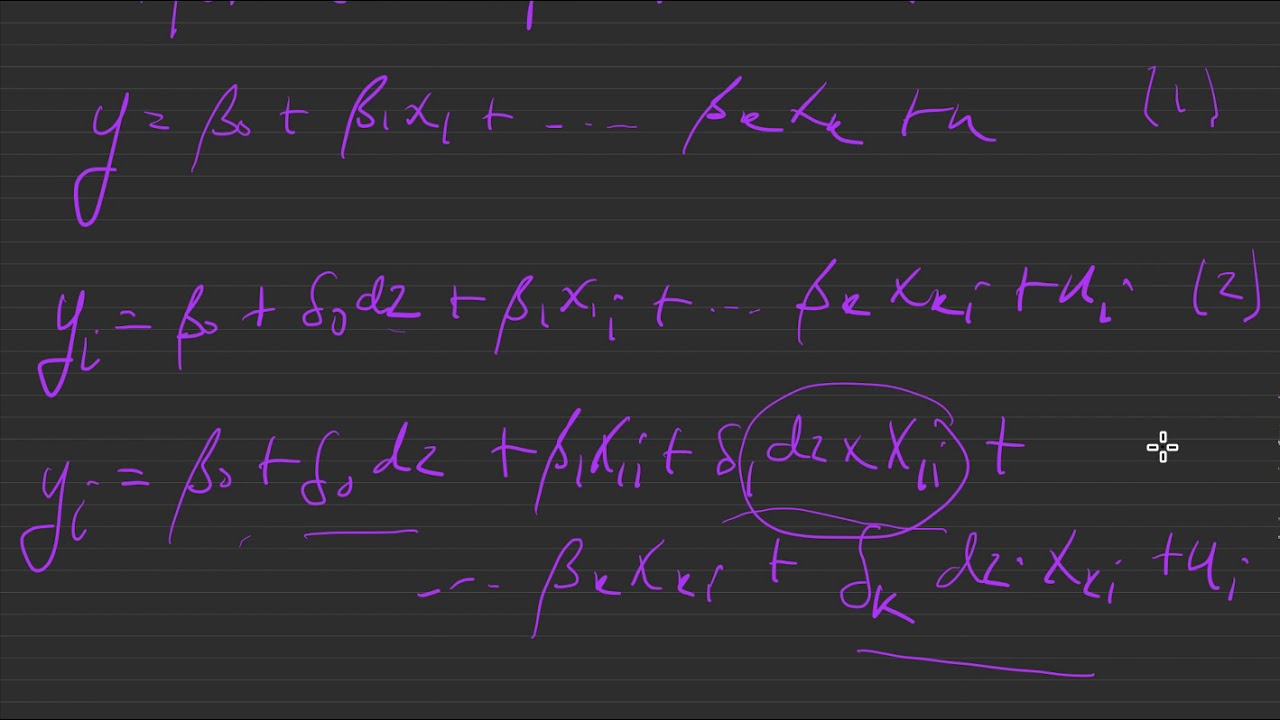 y = β₀ + β₁x₁ + .... βₖxₖ + u (1)
yᵢ = β₀ + δ₀dz + β₁x₁ᵢ + ... βₖxₖᵢ + uᵢ (2)
yᵢ = β₀ + δ₀dz + β₁x₁ᵢ + δ₁dz × x₁ᵢ +
... βₖxₖᵢ + δₖdz · xₖᵢ + uᵢ